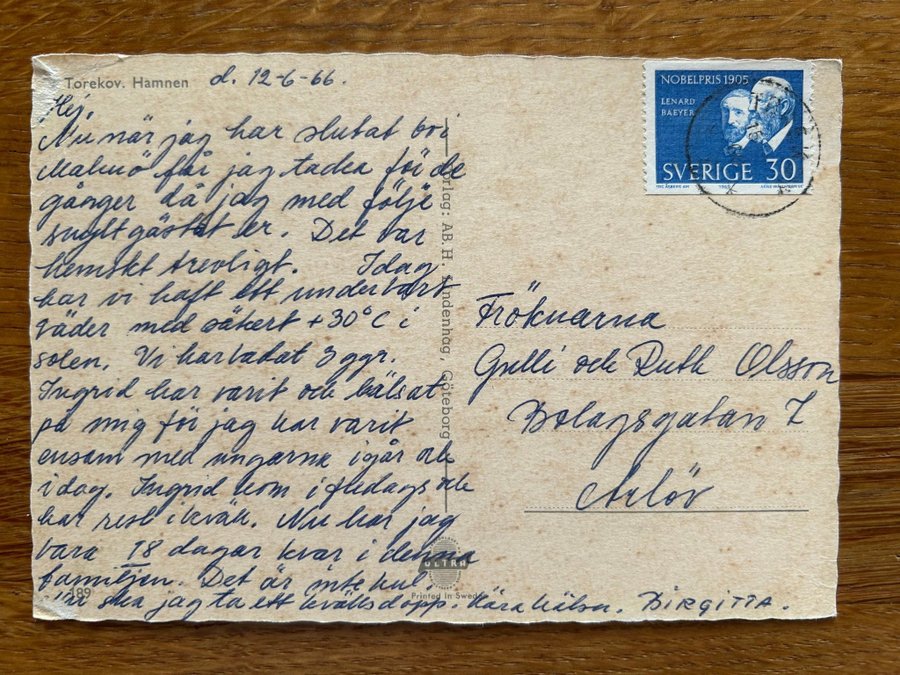 Torekov. Hamnen d. 12-6-66.
Hej.
Nu när jag har slutat bo i
Malmö får jag tacka för de
gånger då jag med följe
snyltgästat er. Det var
hemskt trevligt. Idag
har vi haft ett underbart
väder med säkert +30°C i
solen. Vi har badat 3 ggr.
Ingrid har varit och hälsat
på mig för jag har varit
ensam med ungarna igår och
idag. Ingrid kom i fredags och
har rest ikväll. Nu har jag
bara 18 dagar kvar i denna
familjen. Det är inte kul.
ska jag ta ett kvällsdopp. Kära hälsn. BIRGITTA.
189
Förlag: AB. H. Lindenhag, Göteborg
ULTRA
Printed in Sweden
NOBELPRIS 1905
LENARD
BAEYER
SVERIGE 30
1965
Fröknarna
Gulli och Ruth Olsson
Bolagsgatan 7
Arlöv